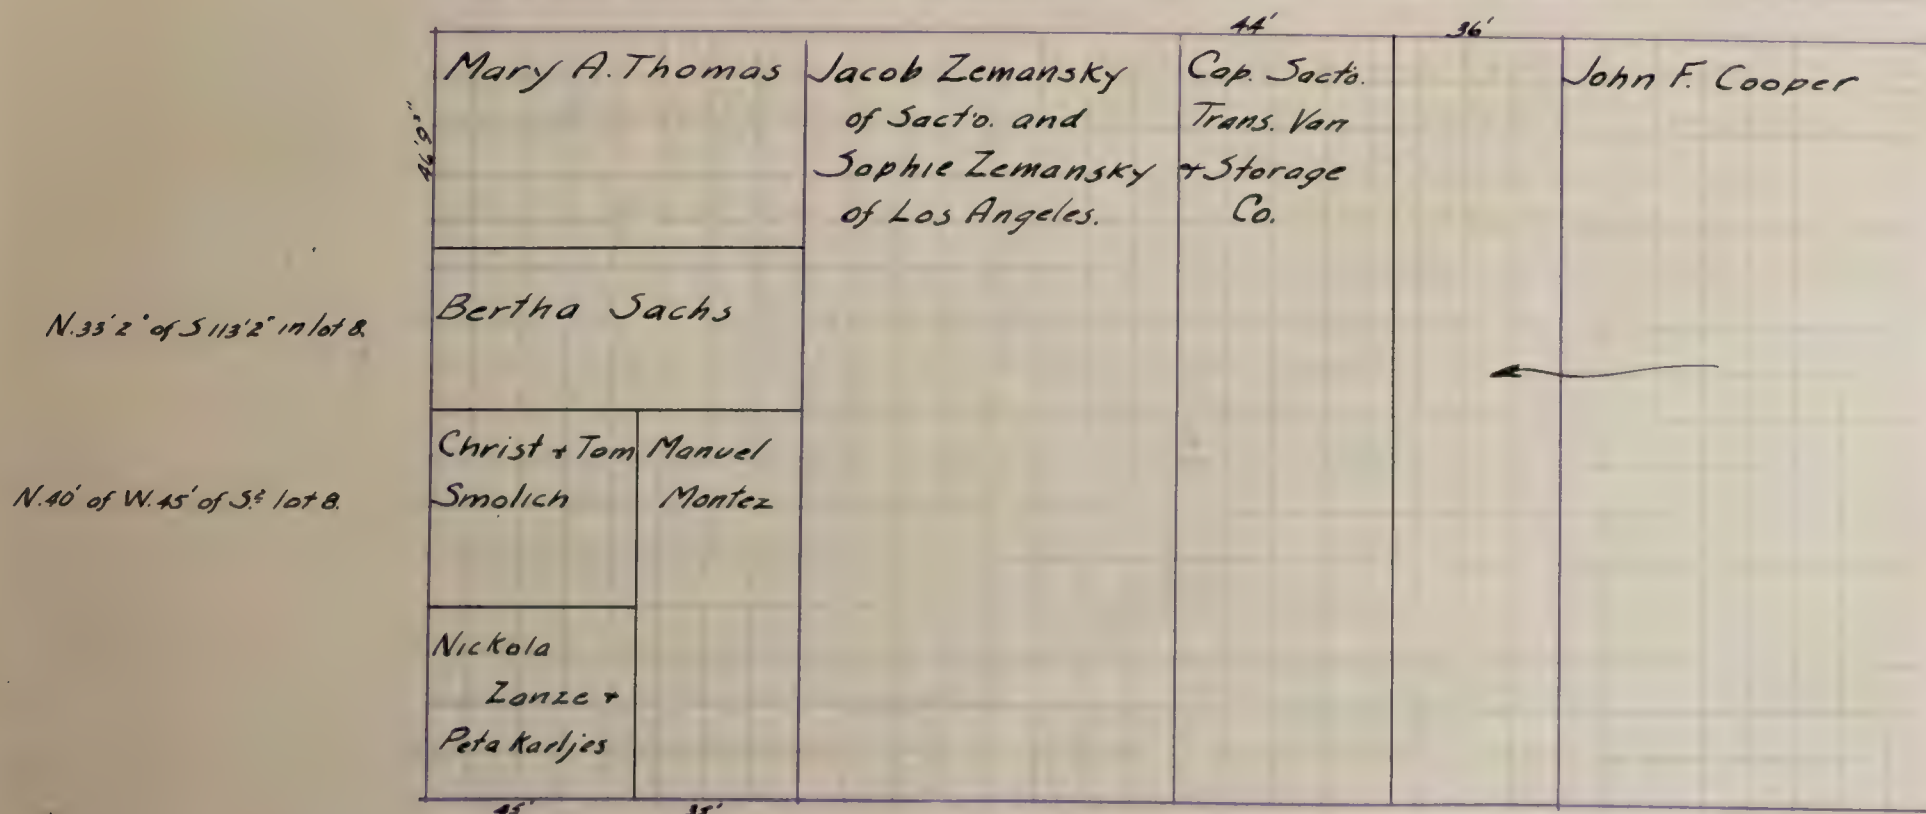 44'
36'
46'9"
Mary A. Thomas
Jacob Zemansky
of Sact'o. and
Sophie Zemansky
of Los Angeles.
Cap. Sacto.
Trans. Van
+ Storage
Co.
John F. Cooper
N.33'2" of S 113'2" in lot 8.
Bertha Sachs
N.40' of W.45' of S.½ lot 8.
Christ + Tom
Smolich
Manuel
Montez
Nickola
Zanze +
Peta Karljes
45'
35'